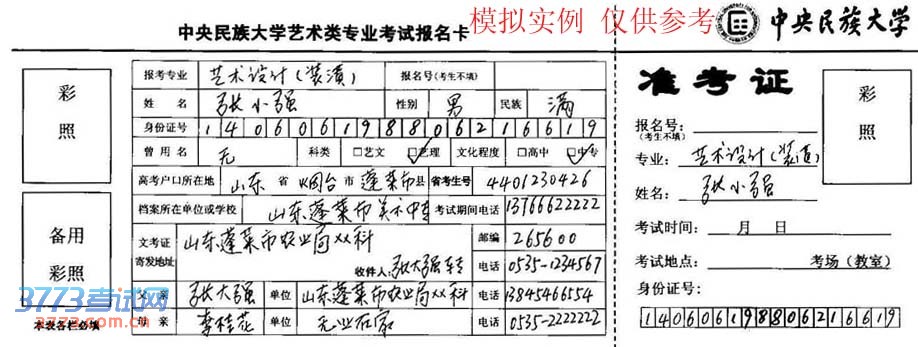 模拟实例 仅供参考
中央民族大学
中央民族大学艺术类专业考试报名卡
彩照
备用彩照
本表各栏必填
3773考试网
报考专业 艺术设计(装潢) 报名号(考生不填)
姓名 张小强 性别 男 民族 满
身份证号 140606198806216619
曾用名 无 科类 □艺文 □艺理 文化程度 □高中 □中专
高考户口所在地 山东省 烟台市 蓬莱市县 省考生号 4401230426
档案所在单位或学校 山东蓬莱市美术中专 考试期间电话 13766622222
文考证寄发地址 山东蓬莱市农业局XX科 邮编 265600
收件人:张大强转 电话 0535-1234567
父亲 张大强 单位 山东蓬莱市农业局XX科 电话 13845466554
母亲 李桂花 单位 无业在家 电话 0535-2222222
准考证
彩照
报名号:
(考生不填)
专业: 艺术设计(装潢)
姓名: 张小强
考试时间: 月 日
考试地点: 考场(教室)
身份证号:
140606198806216619